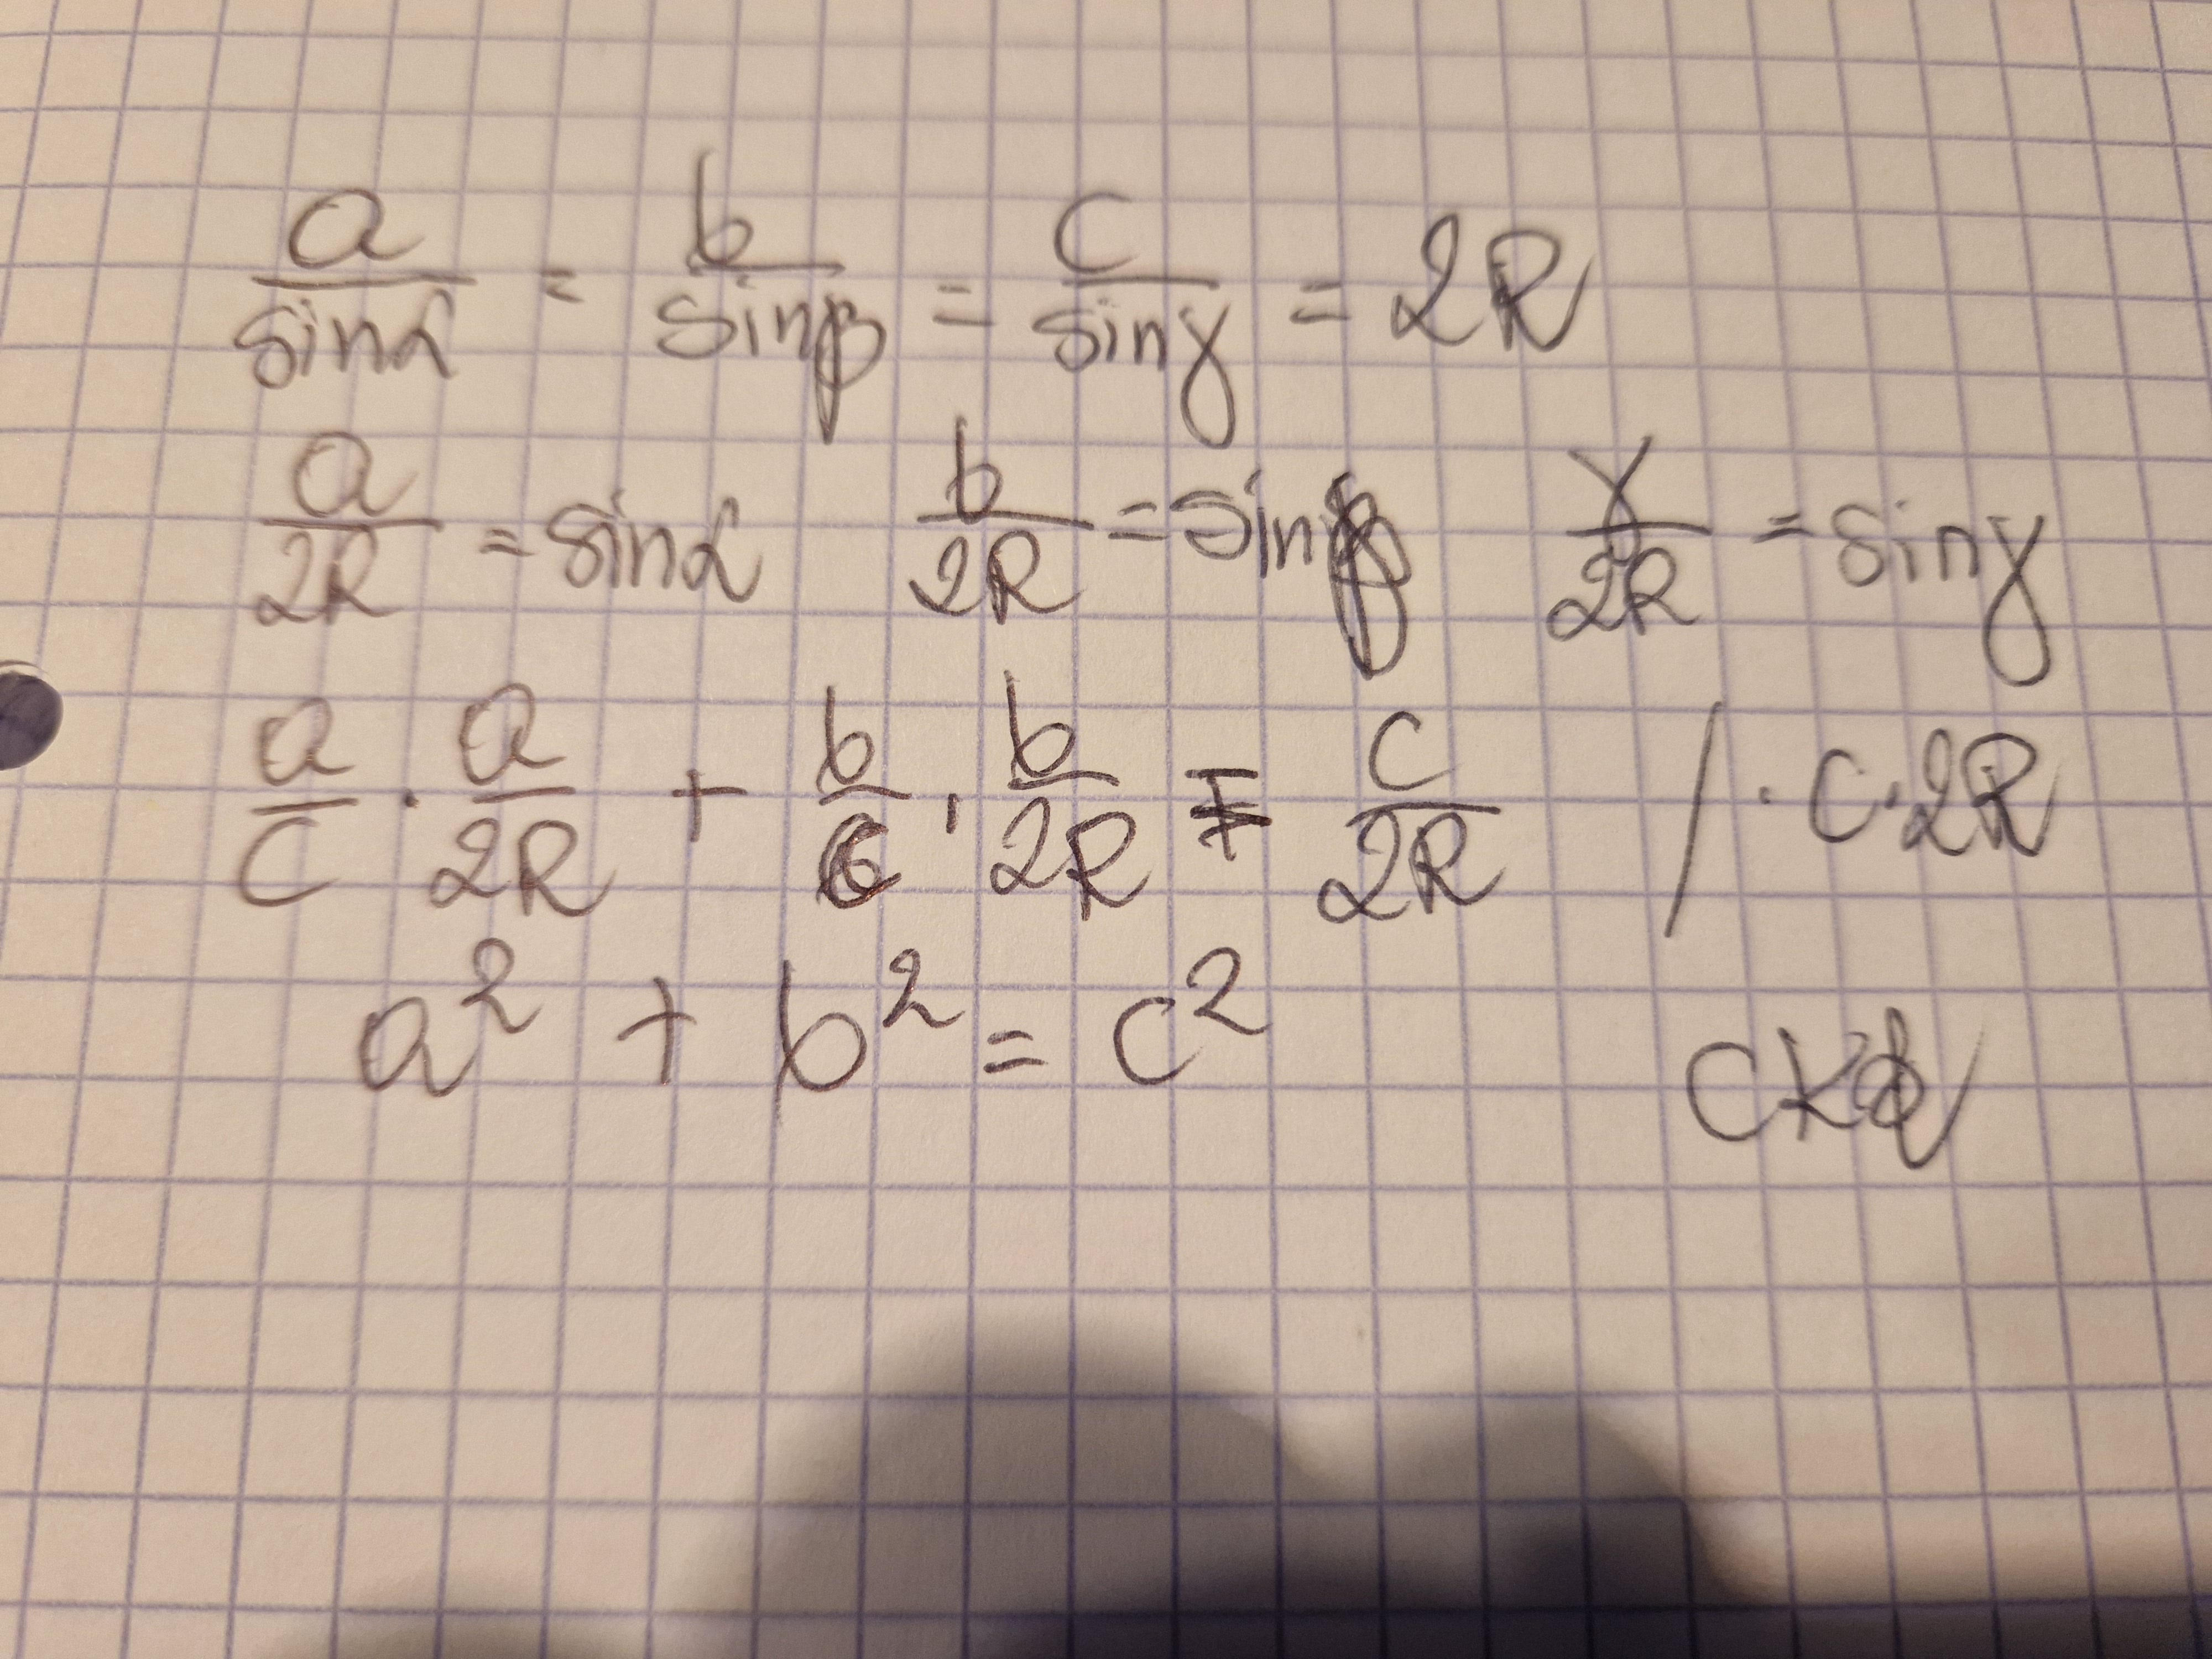 a/sinα = b/sinβ = c/sinγ = 2R
a/2R = sinα b/2R = sinβ γ/2R = sinγ
a/c · a/2R + b/c · b/2R = c/2R / · c · 2R
a² + b² = c²
ckd